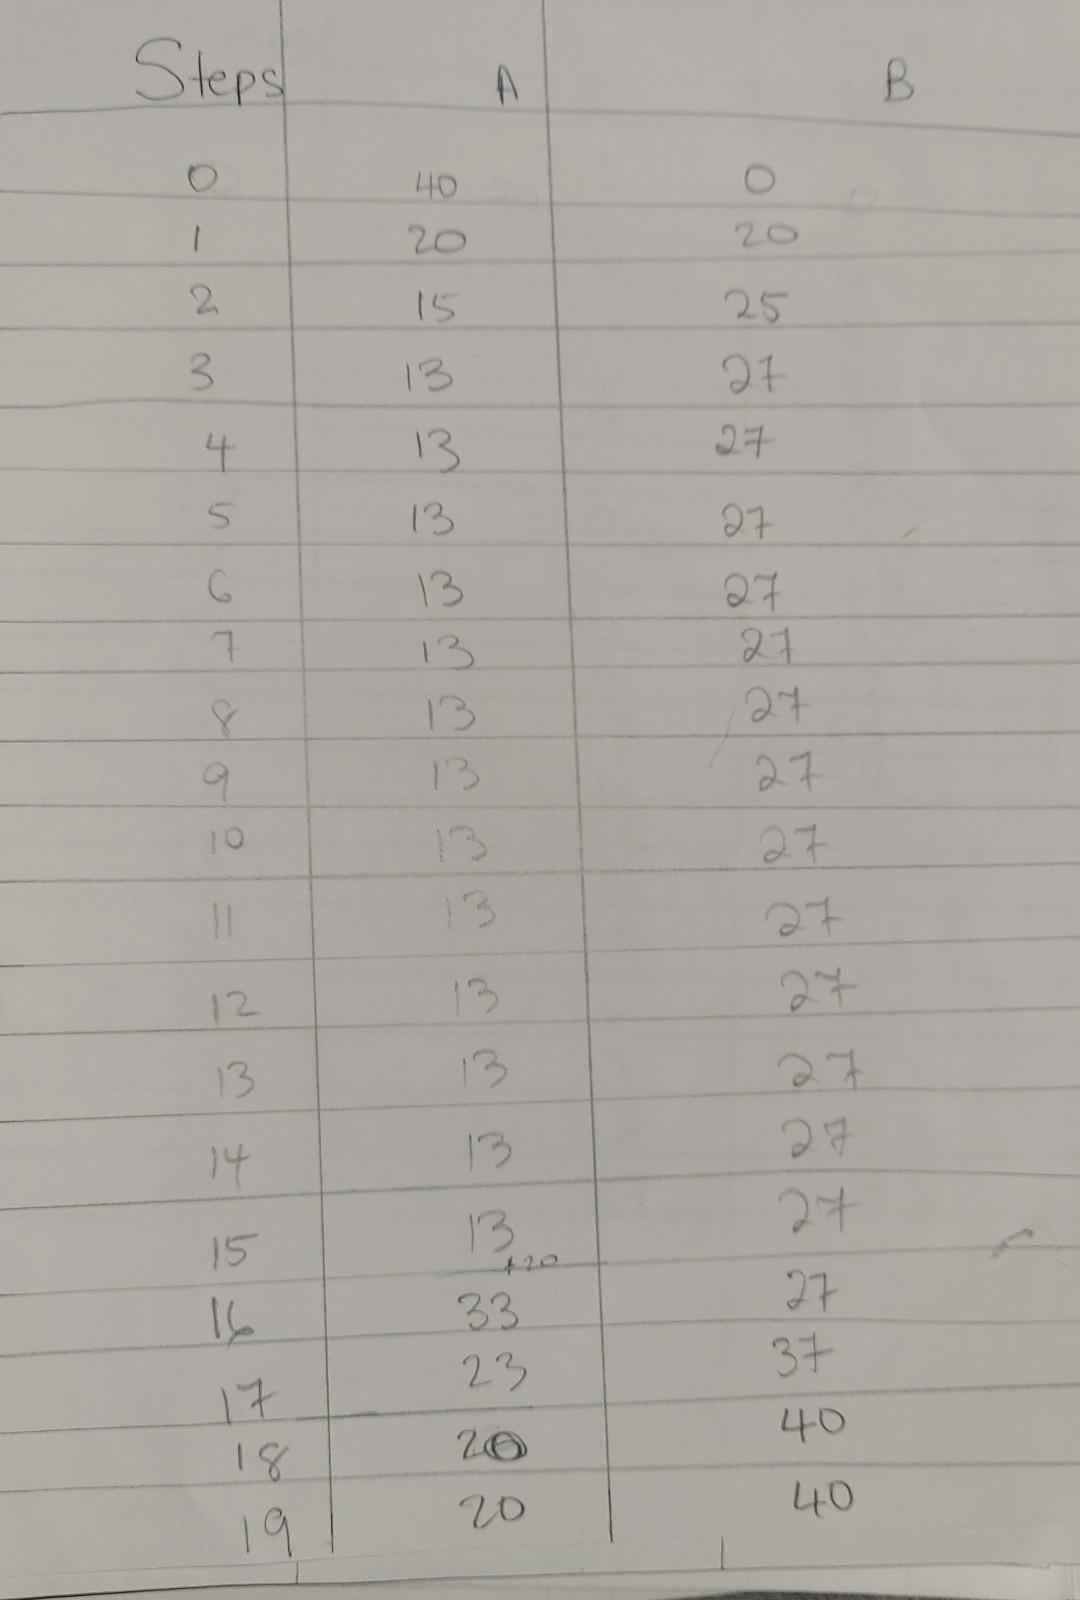 Steps A B
0 40 0
1 20 20
2 15 25
3 13 27
4 13 27
5 13 27
6 13 27
7 13 27
8 13 27
9 13 27
10 13 27
11 13 27
12 13 27
13 13 27
14 13 27
15 13 27
+20
16 33 27
17 23 37
18 20 40
19 20 40